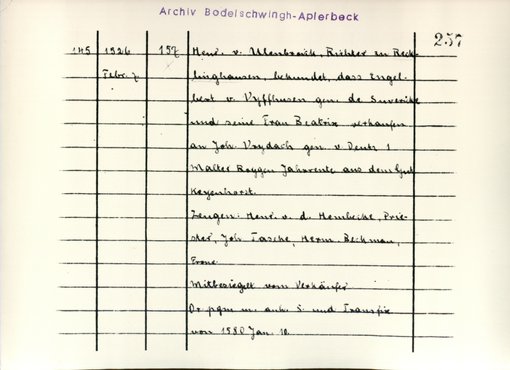 Archiv Bodelschwingh-Aplerbeck
257
145 1526 157 Henr. v. Ulenbroick, Richter in Reck-
Febr. 7 linghausen, bekundet, dass Engel-
bert v. Vyffhusen gen. de Suverike
und seine Frau Beatrix verkaufen
an Joh. Vrydach gen. v. Deutz 1
Malter Roggen Jahrrente aus dem Gut
Keyenhorst.
Zeugen: Henr. v. d. Hembeike, Prie-
ster, Joh. Tasche, Herm. Beckman,
Frone
Mitbesiegelt vom Verkäufer
Or. pgm. m. anh. S. und Transfix
von 1580 Jan. 10.